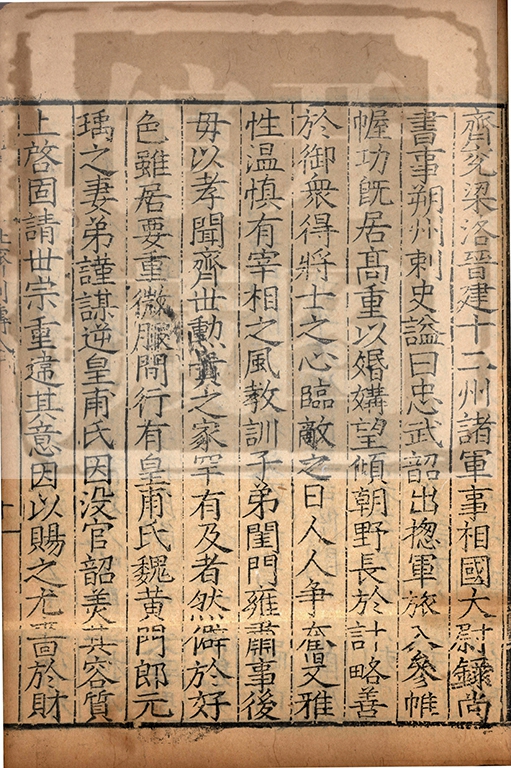 齊兖梁洛晉建十二州諸軍事相國大尉錄尚
書事朔州刺史謚曰忠武韶出揔軍旅入叅帷
幄功旣居髙重以婚媾望傾朝野長於計略善
於御衆得將士之心臨敵之日人人爭奮又雅
性温慎有宰相之風教訓子弟閨門雍肅事後
母以孝聞齊世勳貴之家罕有及者然僻於好
色雖居要重微服間行有皇甫氏魏黃門郎元
瑀之妻弟謹謀逆皇甫氏因没官韶羙其容質
上啓固請世宗重違其意因以賜之尤嗇於財